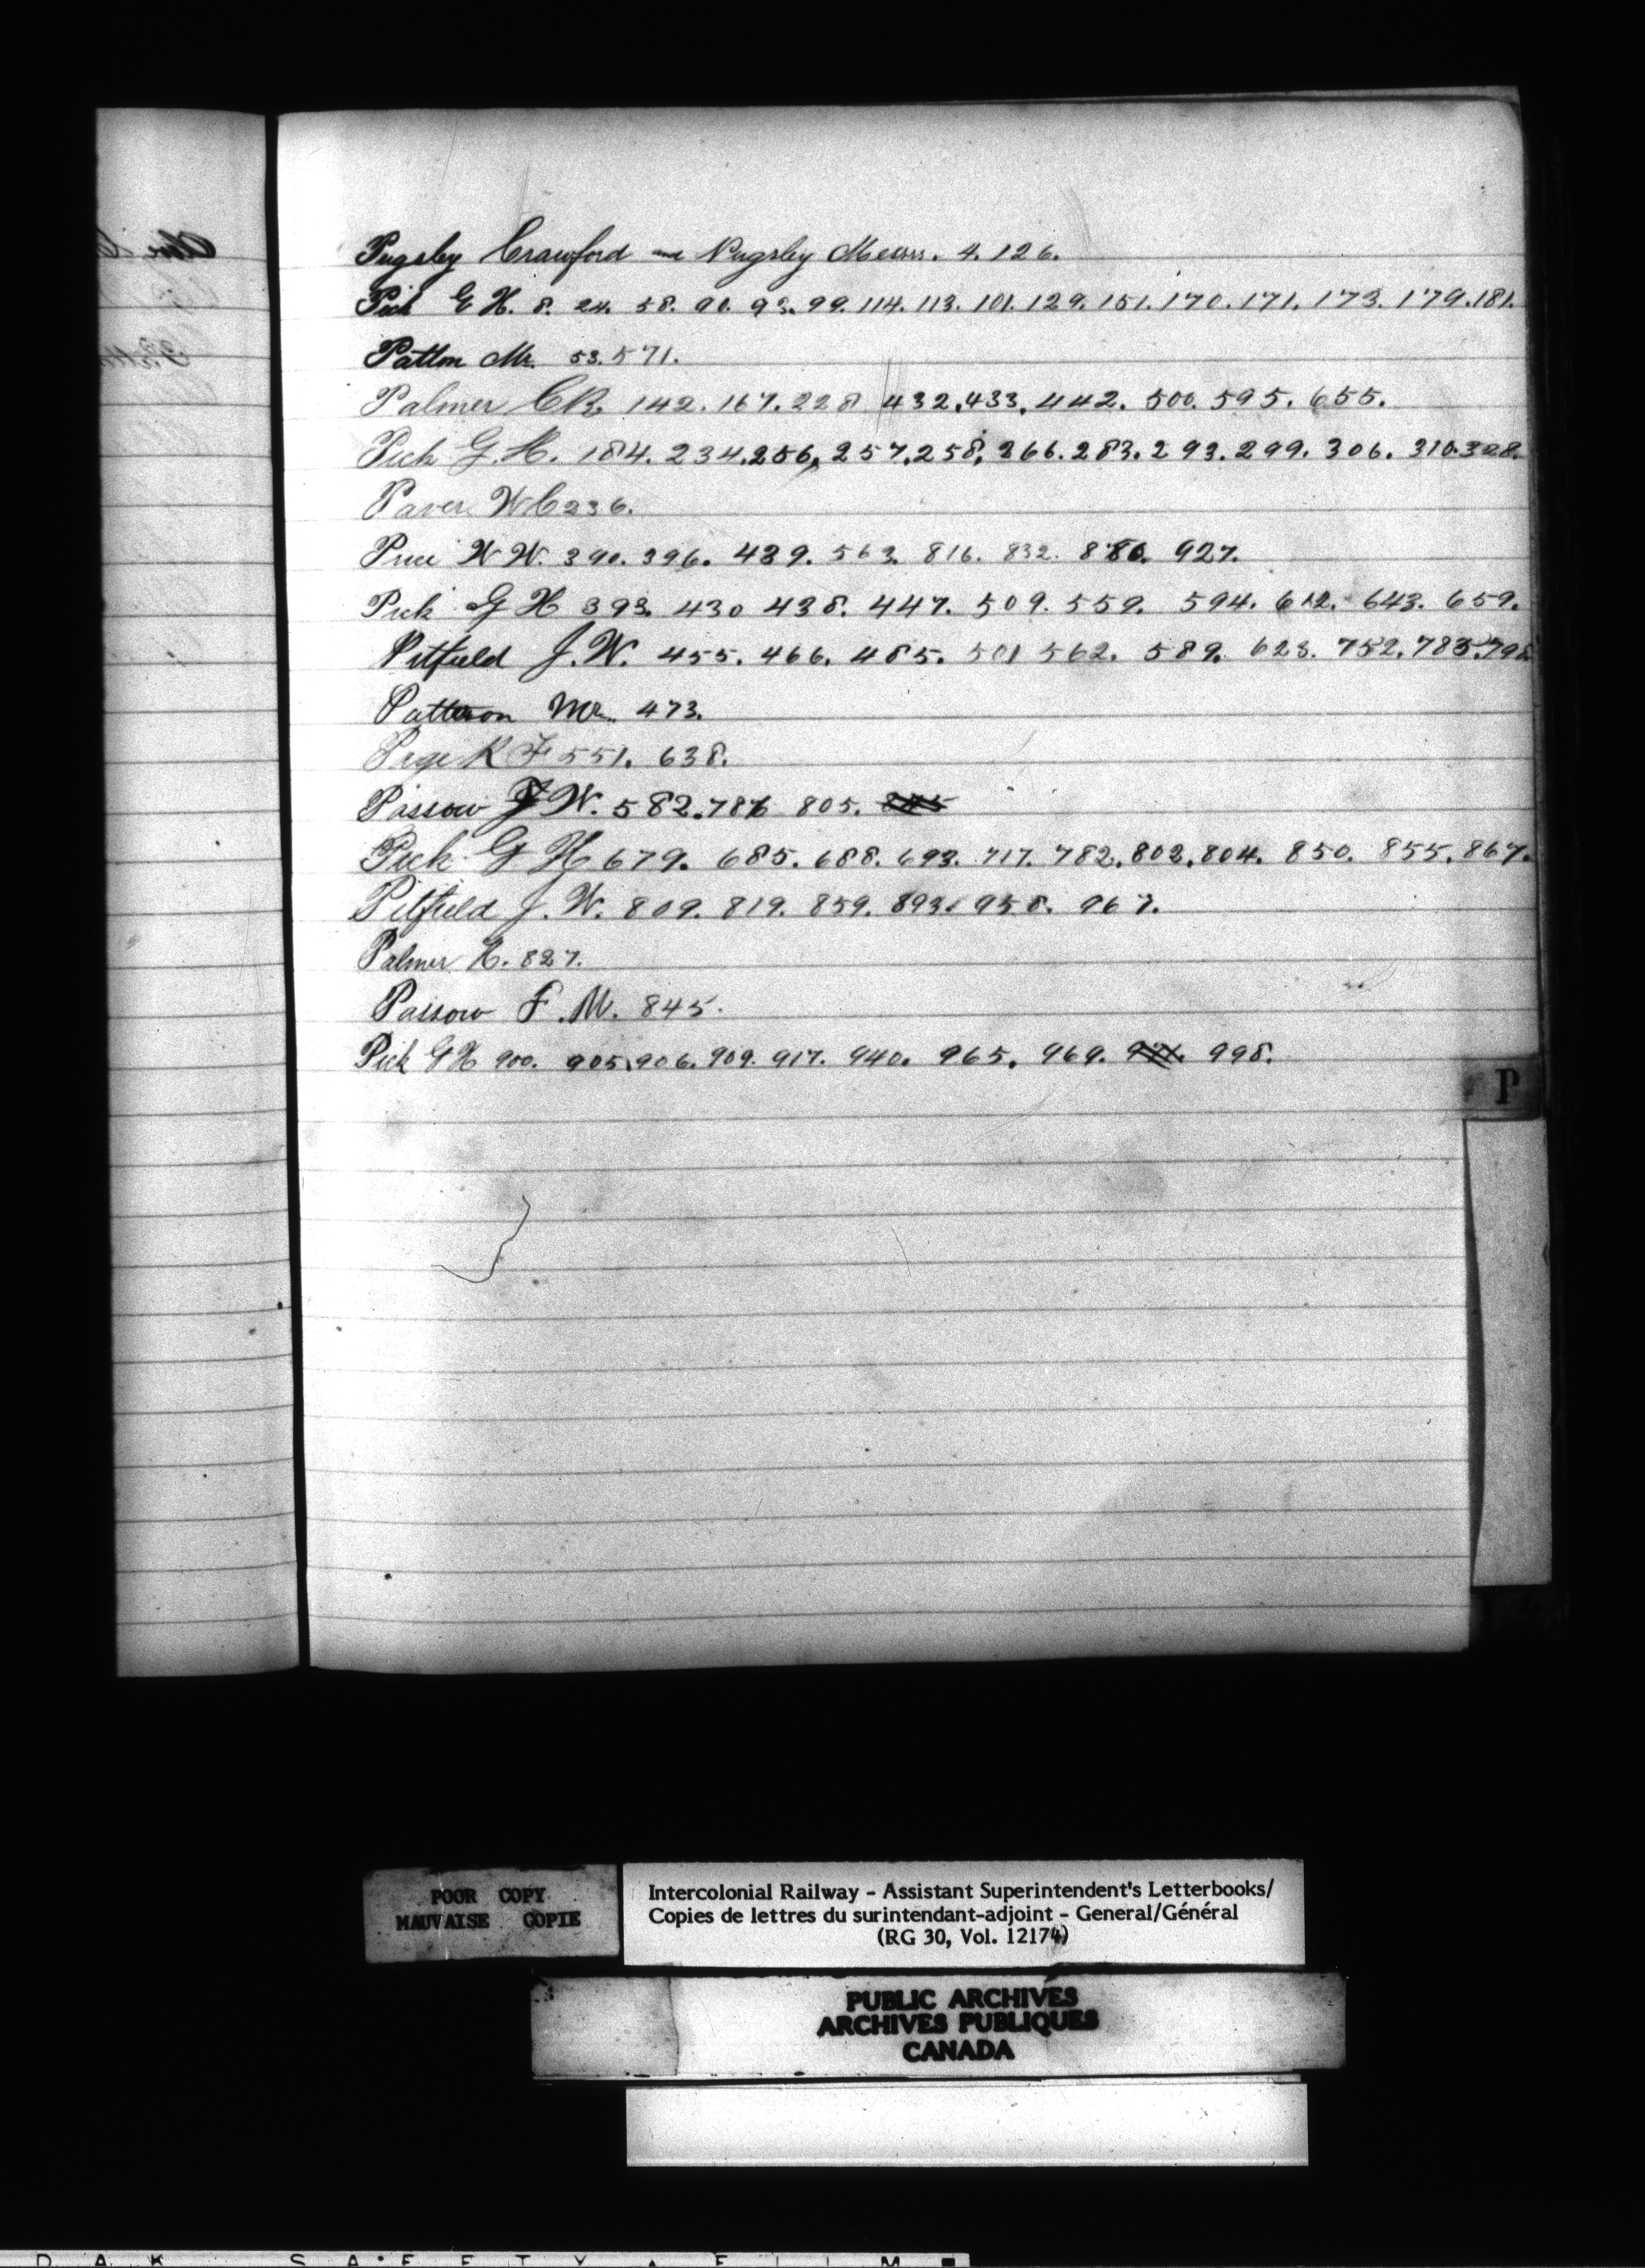 Pugsley Crawford and Pugsley Messrs. 4. 126.
Pick G H. 8. 24. 58. 90. 93. 99. 114. 113. 101. 129. 151. 170. 171. 173. 179. 181.
Patton Mr. 53. 571.
Palmer C R. 142. 167. 228 432. 433. 442. 500. 595. 655.
Pick G. H. 184. 234. 256, 257. 258, 266. 283. 293. 299. 306. 310. 328.
Paver W C 236.
Price W W. 390. 396. 439. 563. 816. 832. 880. 927.
Pick G H 393. 430 438. 447. 509. 559. 594. 612. 643. 659.
Pitfield J. W. 455. 466. 485. 501 562. 589. 623. 752. 783. 798
Patterson Mr. 473.
Page K F 551. 638.
Passow F W. 582. 786 805. 845
Pick G H 679. 685. 688. 693. 717. 782. 802. 804. 850. 855. 867.
Pitfield J. W. 809. 819. 859. 893. 958. 967.
Palmer H. 827.
Passow F. M. 845.
Pick G H 900. 905. 906. 909. 917. 940. 965. 969. 998.
P
POOR COPY
MAUVAISE COPIE
Intercolonial Railway - Assistant Superintendent's Letterbooks/
Copies de lettres du surintendant-adjoint - General/Général
(RG 30, Vol. 12174)
PUBLIC ARCHIVES
ARCHIVES PUBLIQUES
CANADA